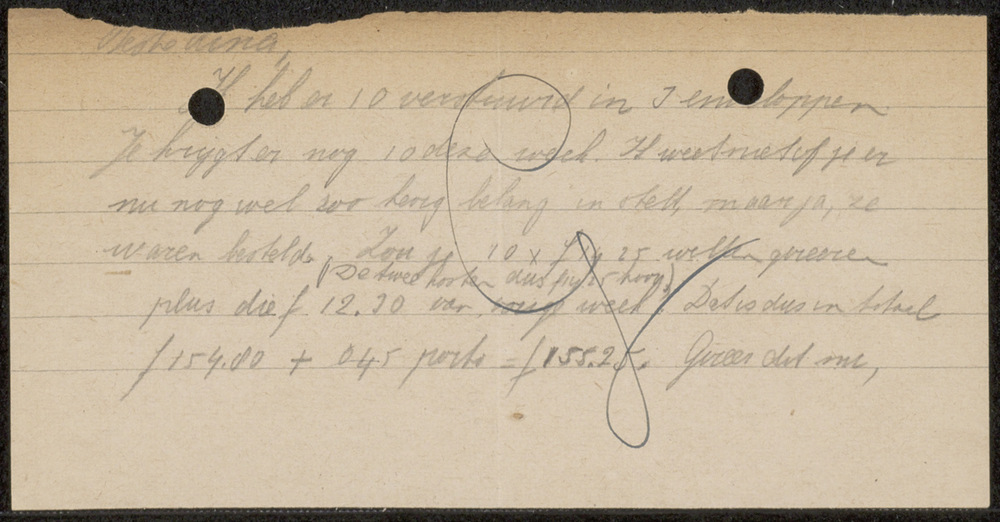 Beste Dina,
Ik heb er 10 verstuurd in 3 enveloppen
Je krygt er nog 10 deze week. Ik weet niet of je er
nu nog wel zoo hevig belang in stelt, maar ja, ze
waren besteld. Zou je 10 x f 14.25 willen gireeren
(De twee kosten dus
plus die f 12.30 van vorige week. Dat is dus in totaal
f 154.80 + 045 porto = f 155.25. Gireer dat nu,